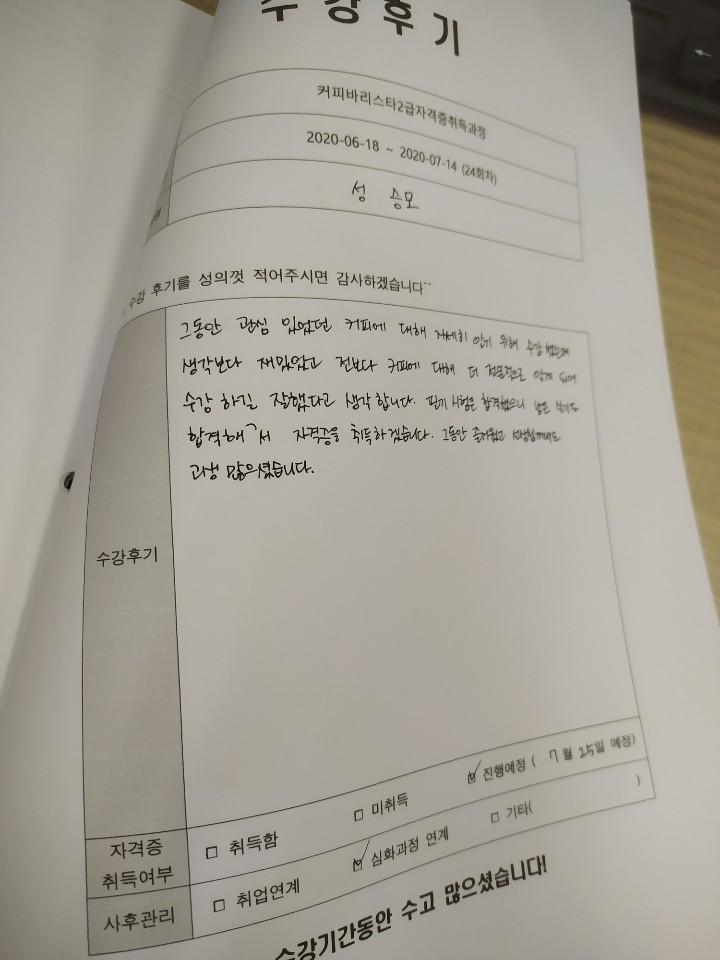 수강후기
커피바리스타2급자격증취득과정
2020-06-18 ~ 2020-07-14 (24회차)
성 승모
수강 후기를 성의껏 적어주시면 감사하겠습니다^^
그동안 관심 있었던 커피에 대해 자세히 알기 위해 수강 했는데
생각보다 재밌었고 전보다 커피에 대해 더 전문적으로 알게 되어
수강 하길 잘했다고 생각 합니다. 필기 시험은 합격했으니 남은 실기도
합격해서 자격증을 취득하겠습니다. 그동안 즐거웠고 선생님께서도
고생 많으셨습니다.
수강후기
자격증
취득여부
□ 취득함 □ 미취득 ☑ 진행예정 ( 7월 25일 예정)
사후관리 □ 취업연계 ☑ 심화과정 연계 □ 기타( )
수강기간동안 수고 많으셨습니다!